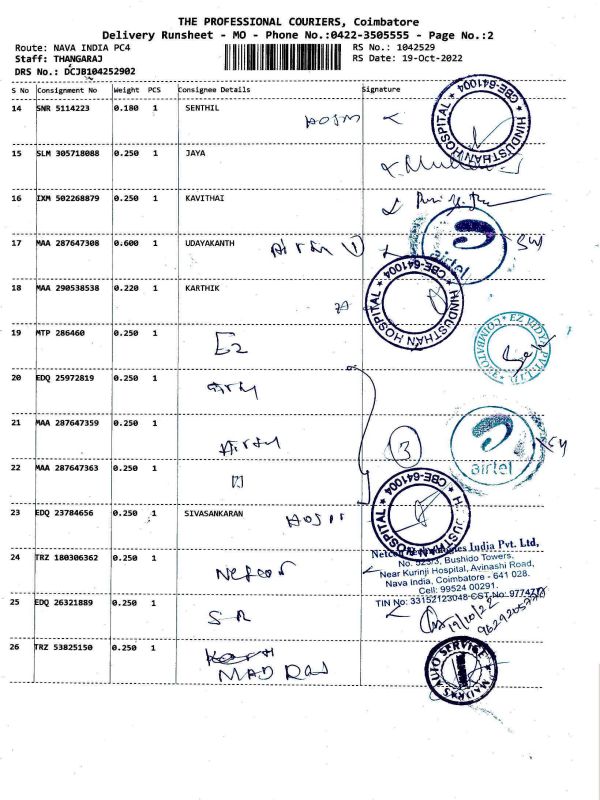 THE PROFESSIONAL COURIERS, Coimbatore
Delivery Runsheet - MO - Phone No.:0422-3505555 - Page No.:2
Route: NAVA INDIA PC4 RS No.: 1042529
Staff: THANGARAJ RS Date: 19-Oct-2022
DRS No.: DCJB104252902
S No Consignment No Weight PCS Consignee Details Signature
14 SNR 5114223 0.180 1 SENTHIL
HINDUSTHAN HOSPITAL * CBE-641004 *
15 SLM 305718088 0.250 1 JAYA
16 IXM 502268879 0.250 1 KAVITHAI
17 MAA 287647308 0.600 1 UDAYAKANTH Airtel 1
airtel
18 MAA 290538538 0.220 1 KARTHIK
HINDUSTHAN HOSPITAL * CBE-641004 *
19 MTP 286460 0.250 1 Ez
EZ VIDYA PVT LTD * COIMBATORE *
20 EDQ 25972819 0.250 1
21 MAA 287647359 0.250 1 Airtel
3
airtel
22 MAA 287647363 0.250 1
23 EDQ 23784656 0.250 1 SIVASANKARAN
HOSPITAL * CBE-641004 *
24 TRZ 180306362 0.250 1 Netcon
India Pvt. Ltd,
No. 523/3, Bushido Towers,
Near Kurinji Hospital, Avinashi Road,
Nava India, Coimbatore - 641 028.
Cell: 99524 00291.
TIN No: 33152123048 CST No:
25 EDQ 26321889 0.250 1 SR
19/10/22
26 TRZ 53825150 0.250 1
MADRAS
MADRAS AUTO SERVICE